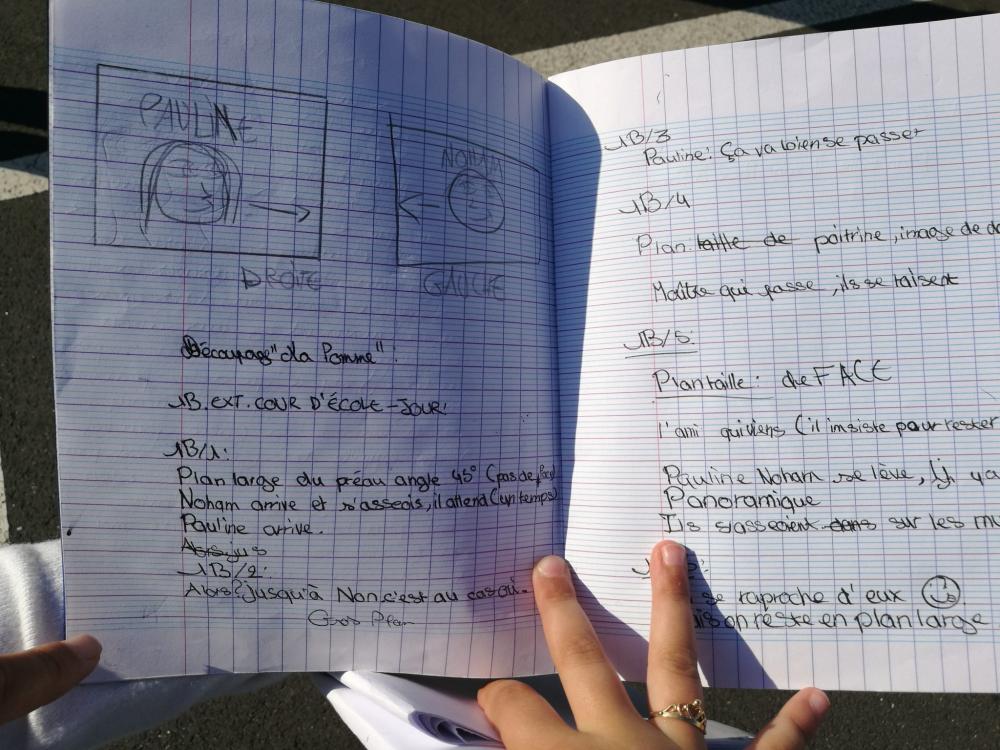 PAULINE
NOHAM
DROITE
GAUCHE
Découpage "La Pomme":
1B. EXT. COUR D'ÉCOLE - JOUR:
1B/1:
Plan large du préau angle 45° (pas de face)
Noham arrive et s'asseois, il attend (un temps)
Pauline arrive.
1B/2:
Alors? jusqu'à Non c'est au cas où.
Gros Plan
1B/3
Pauline: Ça va bien se passer
1B/4
Plan taille de poitrine, image de do
Maître qui passe, ils se taisent
1B/5:
Plan taille: de FACE
l'ami qui viens (il insiste pour rester
Pauline Noham se lève, il y a
Panoramique
Ils s'assoient dans sur les mu
se raproche d'eux
on reste en plan large